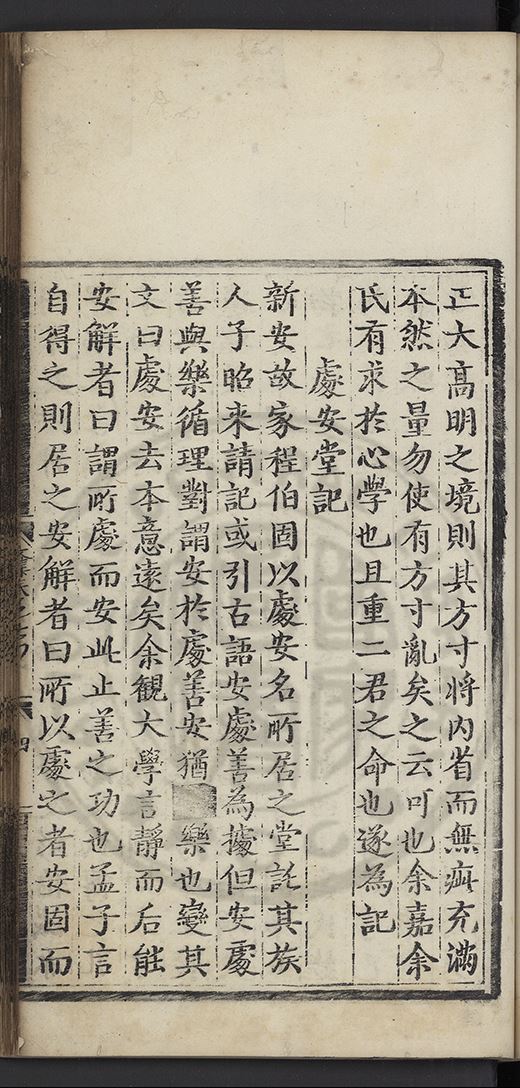 正大高明之境則其方寸將內省而無疵充滿
本然之量勿使有方寸亂矣之云可也余嘉余
氏有求於心學也且重二君之命也遂為記
處安堂記
新安故家程伯固以處安名所居之堂託其族
人子昭來請記或引古語安處善為據但安處
善與樂循理對謂安於處善安猶樂也變其
文曰處安去本意遠矣余觀大學言靜而后能
安解者曰謂所處而安此止善之功也孟子言
自得之則居之安解者曰所以處之者安固而
四